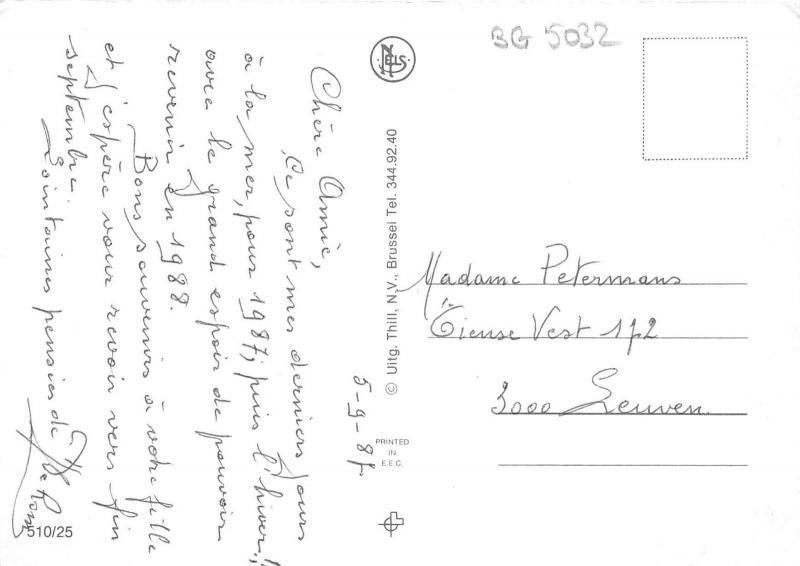 BG 5032
NELS
5-9-87
Chère Amie,
Ce sont mes derniers jours
à la mer, pour 1987, puis l'hiver!!
avec le grand espoir de pouvoir
revenir en 1988.
Bons souvenirs à votre fille
et j'espère vous revoir vers fin
septembre.
Lointaines pensées de
510/25
© Uitg. Thill, N.V., Brussel Tel. 344.92.40
PRINTED
IN
E.E.C.
Madame Petermans
Tiense Vest 172
3000 Leuven